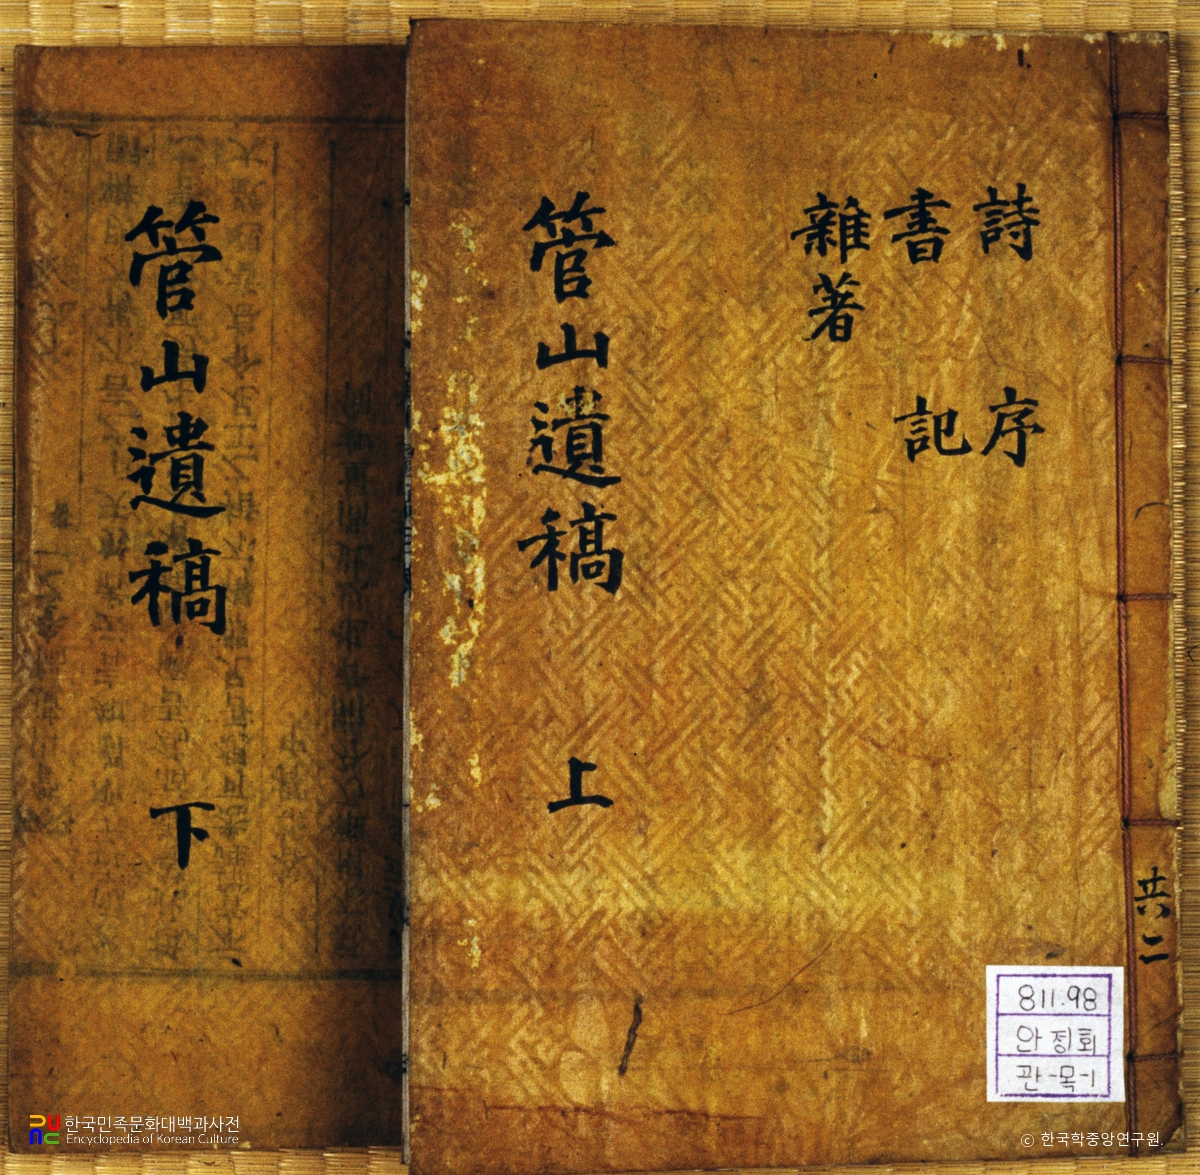 詩 序
書 記
雜著
管山遺稿 上
共二
管山遺稿 下
811.98
안정회
관-목-1
한국민족문화대백과사전
Encyclopedia of Korean Culture
© 한국학중앙연구원.